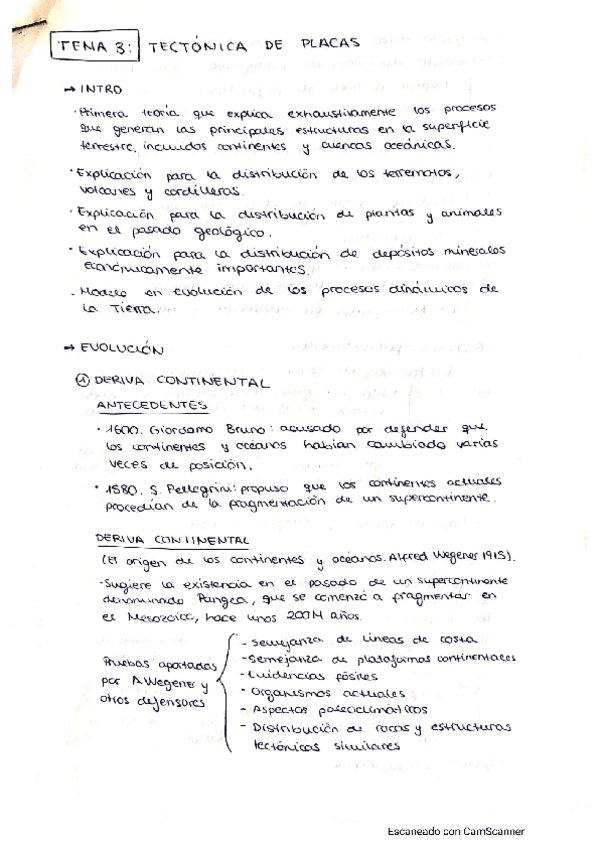 TEMA 3: TECTÓNICA DE PLACAS
→ INTRO
· Primera teoría que explica exhaustivamente los procesos
que generan las principales estructuras en la superficie
terrestre, incluidos continentes y cuencas oceánicas.
· Explicación para la distribución de los terremotos,
volcanes y cordilleras.
· Explicación para la distribución de plantas y animales
en el pasado geológico.
· Explicación para la distribución de depósitos minerales
económicamente importantes.
- Modelo en evolución de los procesos dinámicos de
la Tierra.
→ EVOLUCIÓN
① DERIVA CONTINENTAL
ANTECEDENTES
· 1600. Giordamo Bruno: acusado por defender que
los continentes y océanos habían cambiado varias
veces de posición.
· 1580. S. Pellegrini: propuso que los continentes actuales
procedían de la fragmentación de un supercontinente.
DERIVA CONTINENTAL
(El origen de los continentes y océanos. Alfred Wegener 1915).
- Sugiere la existencia en el pasado de un supercontinente
denominado Pangea, que se comenzó a fragmentar en
el Mesozoico, hace unos 200M años.
Pruebas aportadas
por A.Wegener y
otros defensores
- Semejanza de líneas de costa
- Semejanza de plataformas continentales
- Evidencias fósiles
- Organismos actuales
- Aspectos paleoclimáticos
- Distribución de rocas y estructuras
tectónicas similares
Escaneado con CamScanner